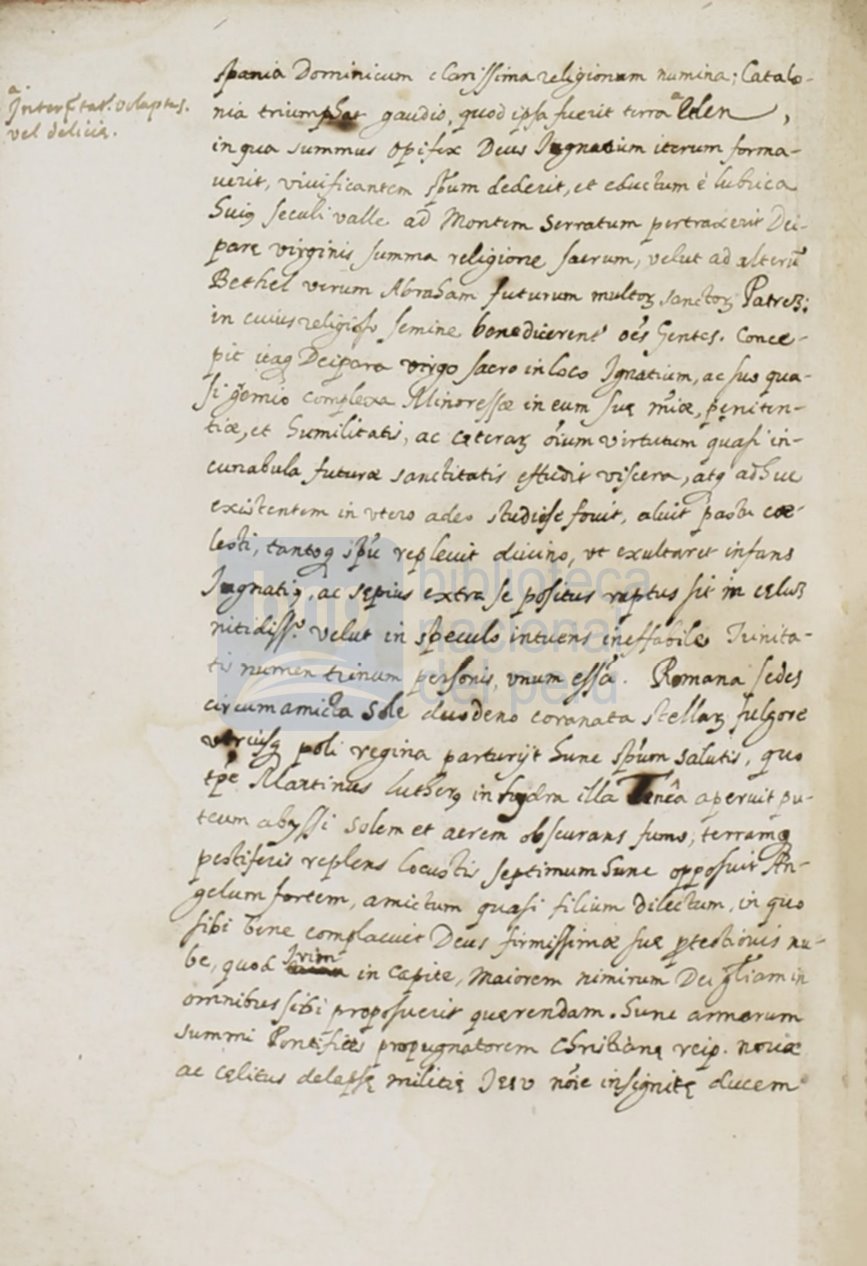 a
Interp̃tat.r voluptas.
vel deliciæ.
spania Dominicum clarissima religionum numina; Catalo-
nia triumphat gaudio, quod ipsa fuerit terra a Eden,
in qua summus opifex Deus Iugnatium iterum forma-
uerit, viuificantem sp̃um dederit, et eductum è lubrica
huiq seculi valle ad Montem Serratum pertraxerit Dei-
parę virginis summa religione sacrum, velut ad alterũ
Bethel verum Abraham futurum multoꝝ sanctoꝝ Patreʒ;
in cuius religioso semine benedicerent.r oẽs Gentes. Conce-
pit itaq Deipara virgo sacro in loco Ignatium, ac suo qua-
si gremio complexa Minoressæ in eum suę m̃iæ, pęniten-
tiæ, et humilitatis, ac cęteraꝝ õium virtutum quasi in-
cunabula futuræ sanctitatis effudit viscera, atq adhuc
existentem in vtero adeo studiose fouit, aluit pastu cœ-
lesti, tantoq sp̃u repleuit diuino, vt exultaret infans
Iugnatiq, ac sępius extra se positus raptus sit in cęluʒ
nitidiss.o velut in speculo intuens ineffabile Trinita-
tis numen trinum personis, vnum essa. Romana sedes
circumamicta sole duodeno coronata stellaꝝ fulgore
vtriusq poli regina parturijt hunc sp̃um salutis, quo
tp̃e Martinus Lutherq in hydra illa Lernêa aperuit pu-
teum abyssi solem et aerem obscurans fumo, terramq
pestiferis replens locustis septimum hunc opposuit An-
gelum fortem, amictum quasi filium dilectum, in quo
sibi bene complacuit Deus firmissimæ suę ꝓtectionis nu-
be, quod Irim in capite, Maiorem nimirum Dei gl̃iam in
omnibus sibi proposuerit quęrendam. hunc armorum
summi Pontificis propugnatorem Christianę reip. nouæ
ac cęlitus delapsę militię Iesv nõie insignitę ducem